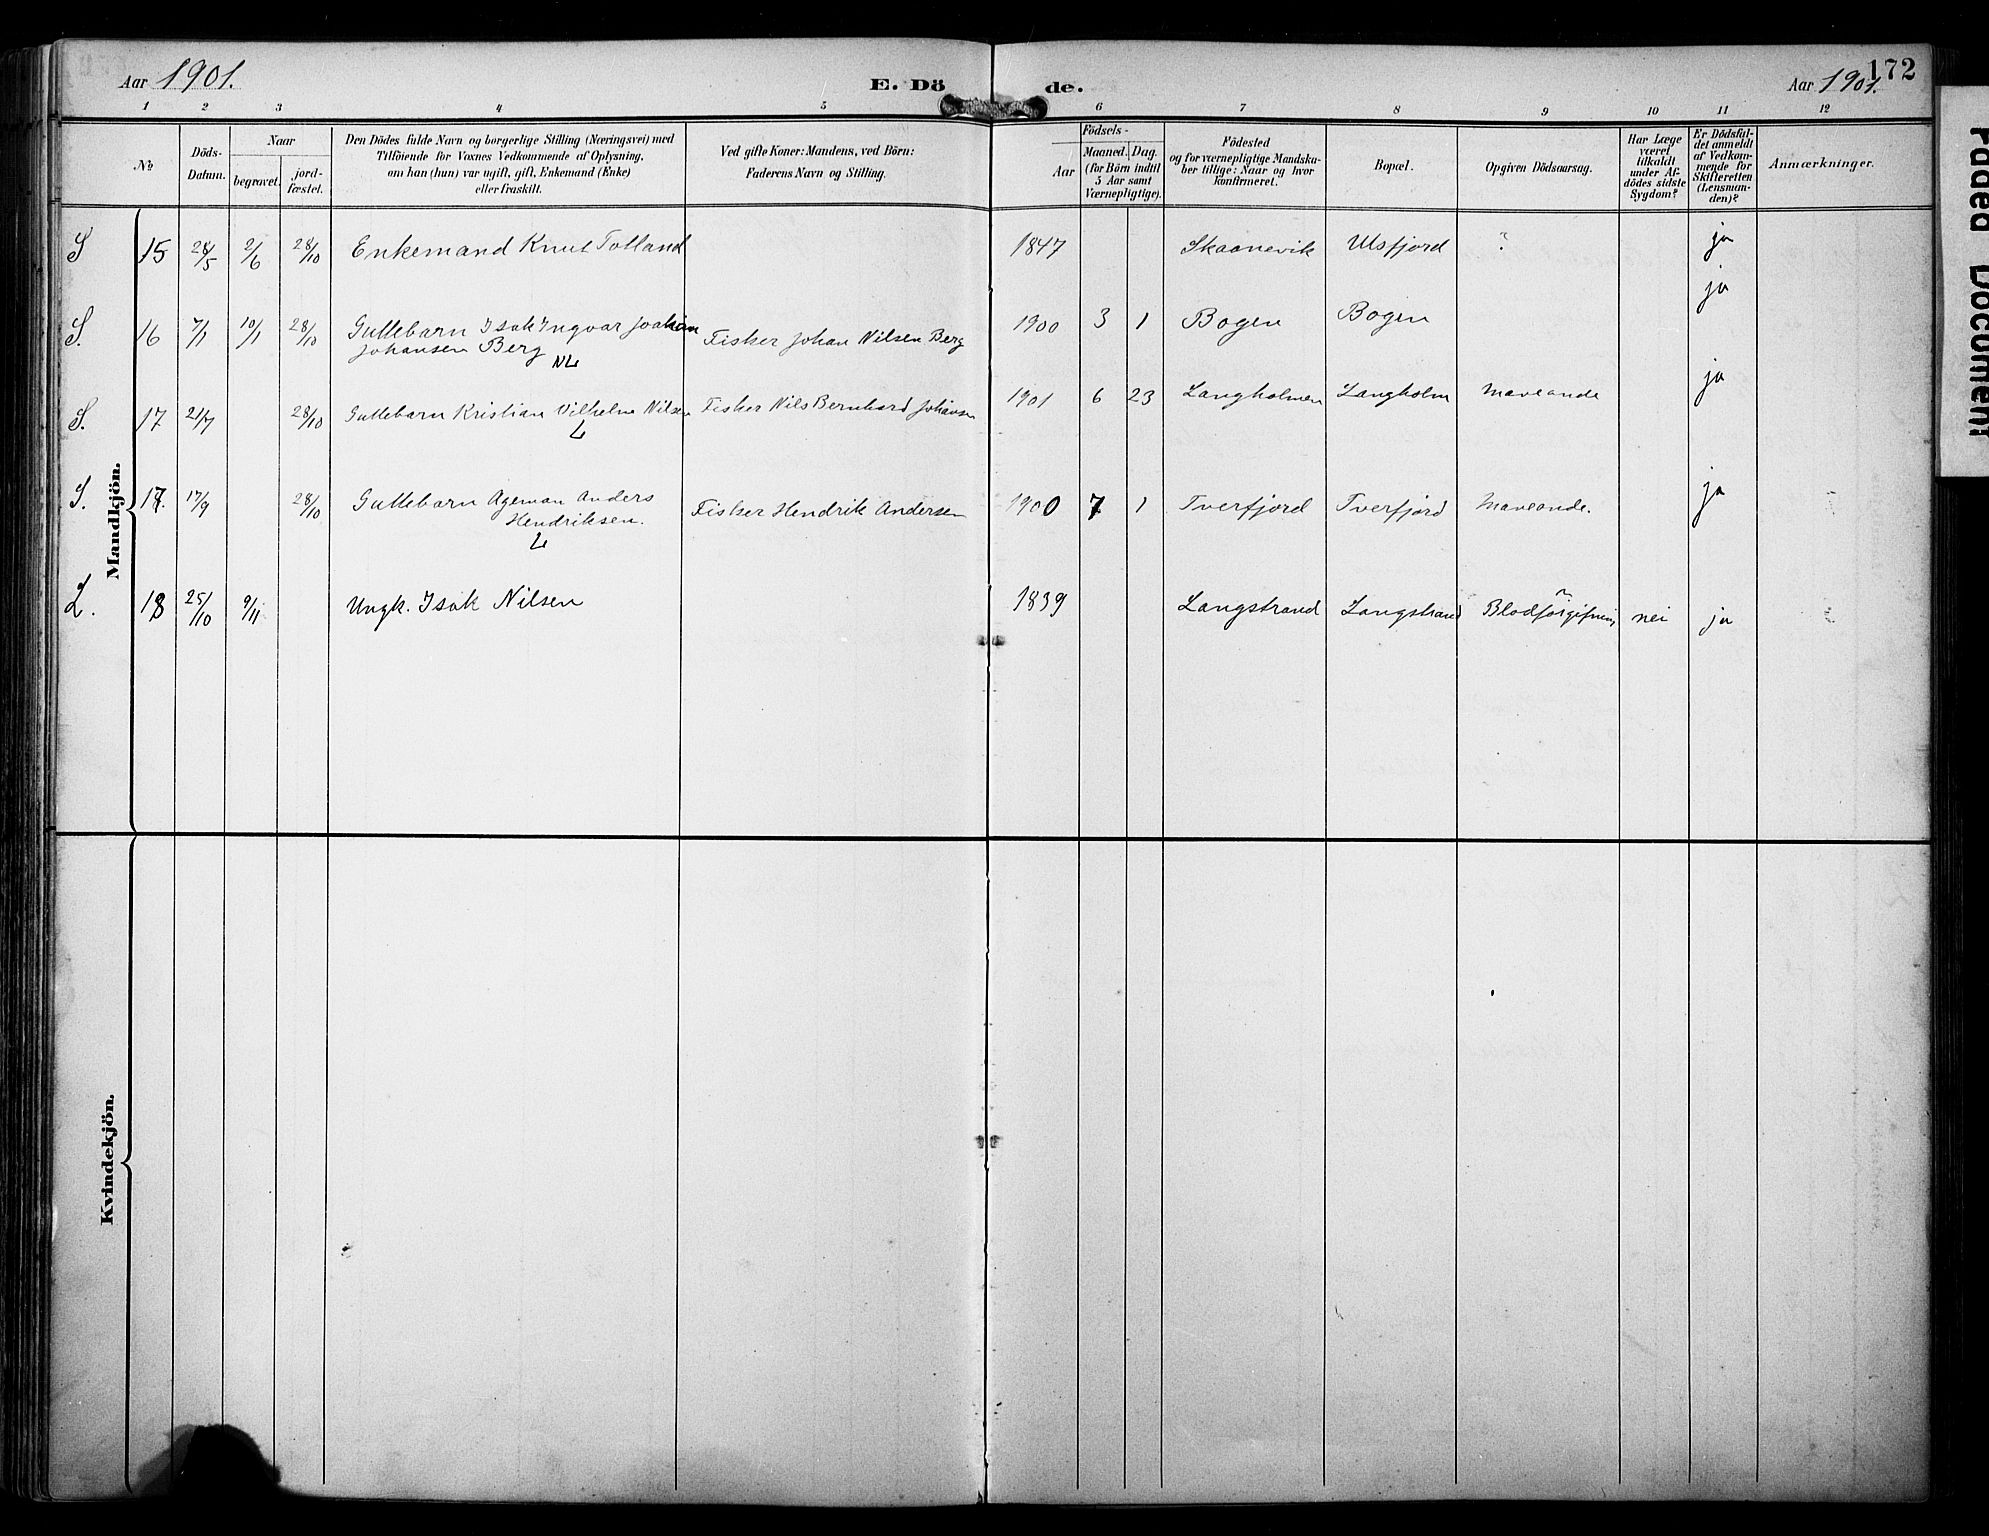 Aar 1901. E. Dö de. Aar 1901. 172
1 2 3 4 5 6 7 8 9 10 11 12
No
Döds-Datum.
Naar
begravet.
jord-fæstet.
Den Dödes fulde Navn og borgerlige Stilling (Næringsvei) med
Tilföiende for Voxnes Vedkommende af Oplysning,
om han (hun) var ugift, gift, Enkemand (Enke)
eller fraskilt.
Ved gifte Koner: Mandens, ved Börn:
Faderens Navn og Stilling.
Födsels-
Aar
Maaned. Dag.
(for Börn indtil
5 Aar samt
Værnepligtige).
Födested
og for værnepligtige Mandska-
ber tillige: Naar og hvor
konfirmeret.
Bopæl.
Opgiven Dödsaarsag.
Har Læge
været
tilkaldt
under Af-
dödes sidste
Sygdom?
Er Dödsfal-
det anmeldt
af Vedkom-
mende for
Skifteretten
(Lensman-
den)?
Anmærkninger.
Mandkjön.
S 15 28/5 2/6 28/10 Enkemand Knut Totland 1847 Skaanevik Ulsfjord ? ja
S. 16 7/1 10/1 28/10 Guttebarn Isak Ingvar Joakim Fisker Johan Nilsen Berg 1900 3 1 Bogen Bogen ja
Johansen Berg NL
S. 17 21/7 28/10 Guttebarn Kristian Vilhelm Nilsen Fisker Nils Bernhard Johansen 1901 6 23 Langholmen Langholm Maveonde ja
L
S. 17. 17/9 28/10 Guttebarn Ageman Anders Fisker Hendrik Andersen 1900 7 1 Tverfjord Tverfjord Maveonde. ja
Hendriksen.
L
L. 18 25/10 9/11 Ungk. Isak Nilsen 1839 Langstrand Langstrand Blodforgifning nei ja
Kvindekjön.
Faded Document